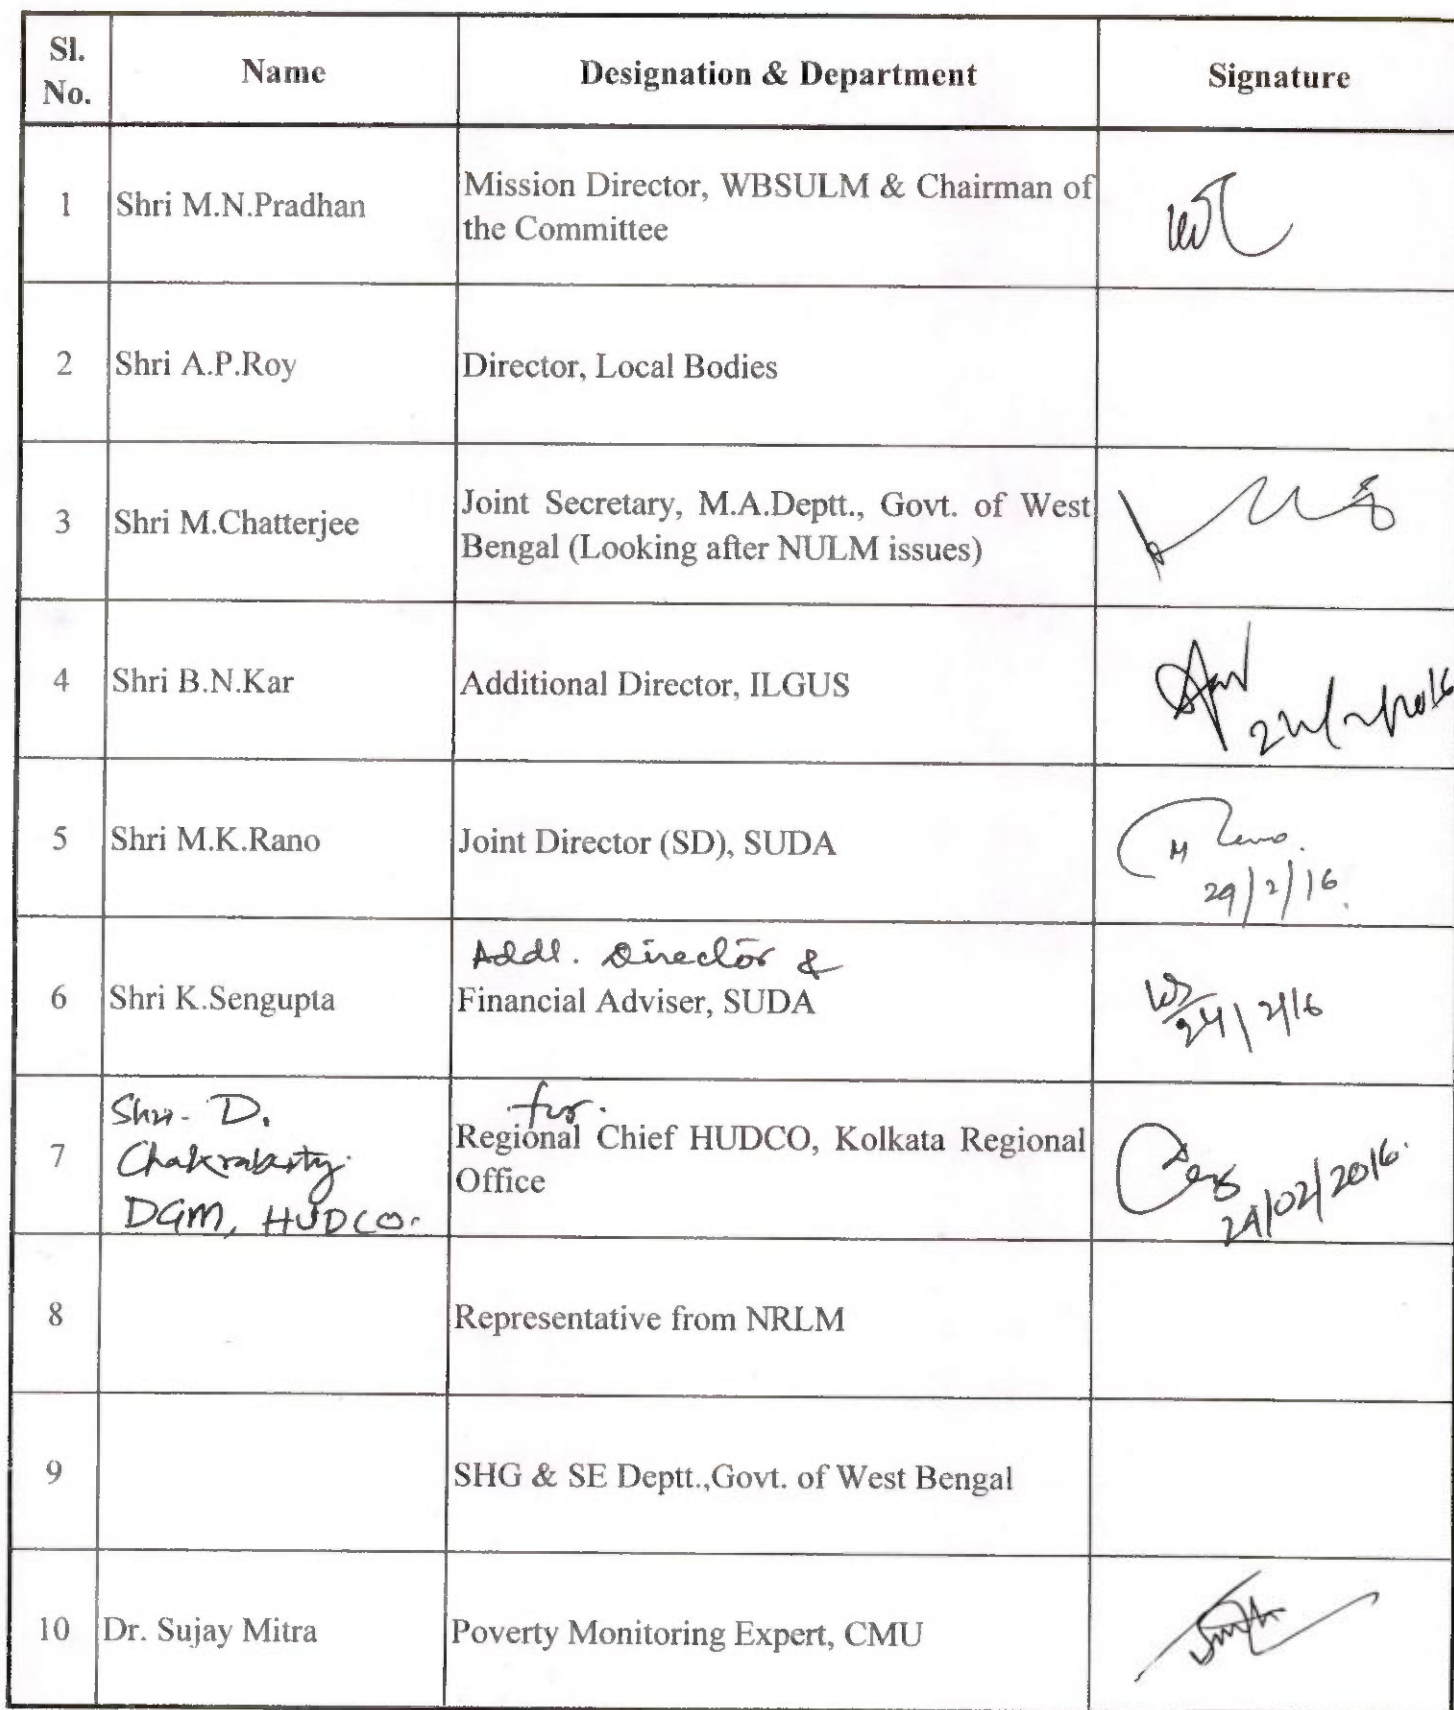 Sl. No. Name Designation & Department Signature
1 Shri M.N.Pradhan Mission Director, WBSULM & Chairman of
the Committee
2 Shri A.P.Roy Director, Local Bodies
3 Shri M.Chatterjee Joint Secretary, M.A.Deptt., Govt. of West
Bengal (Looking after NULM issues)
4 Shri B.N.Kar Additional Director, ILGUS
5 Shri M.K.Rano Joint Director (SD), SUDA M Rano.
29/2/16.
Addl. Director &
6 Shri K.Sengupta Financial Adviser, SUDA
24/2/16
Shri D. for.
7 Chakraborty Regional Chief HUDCO, Kolkata Regional
DGM, HUDCO. Office
24/02/2016.
8 Representative from NRLM
9 SHG & SE Deptt.,Govt. of West Bengal
10 Dr. Sujay Mitra Poverty Monitoring Expert, CMU